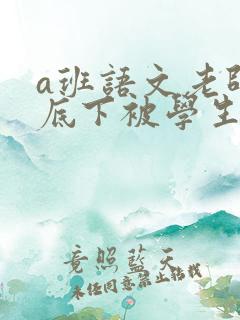 a班語文老
底下被學生
竟照藍天
未任同意禁止轉載